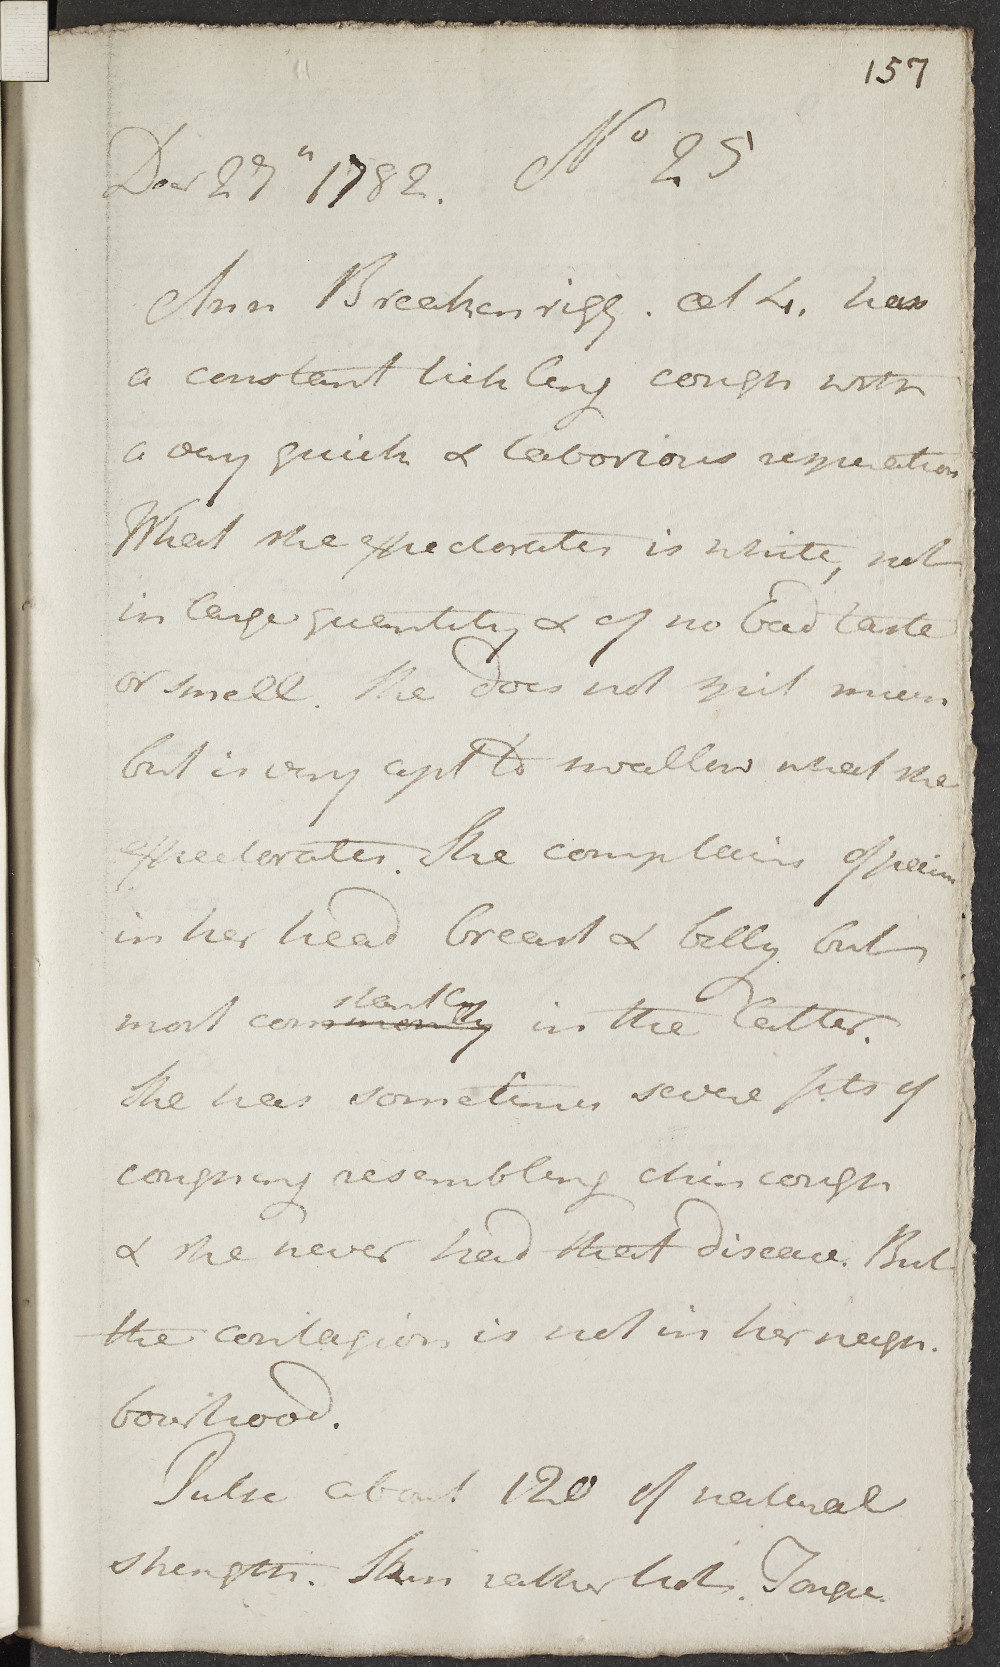 157
Decr 27th 1782. No 25
Ann Breckenrigg. aet 4. has
a constant tickling cough with
a very quick & laborious respiration
What she expectorates is white, not
in large quantity & of no bad taste
or smell. She does not spit much
but is very apt to swallow what she
expectorates. She complains of pain
in her head breast & belly but
most commonly stantly in the latter.
She has sometimes severe fits of
coughing resembling chincough
& she never had that disease. But
the contagion is not in her neigh-
bourhood.
Pulse about 120 of natural
strength. Skin rather hot. Tongue